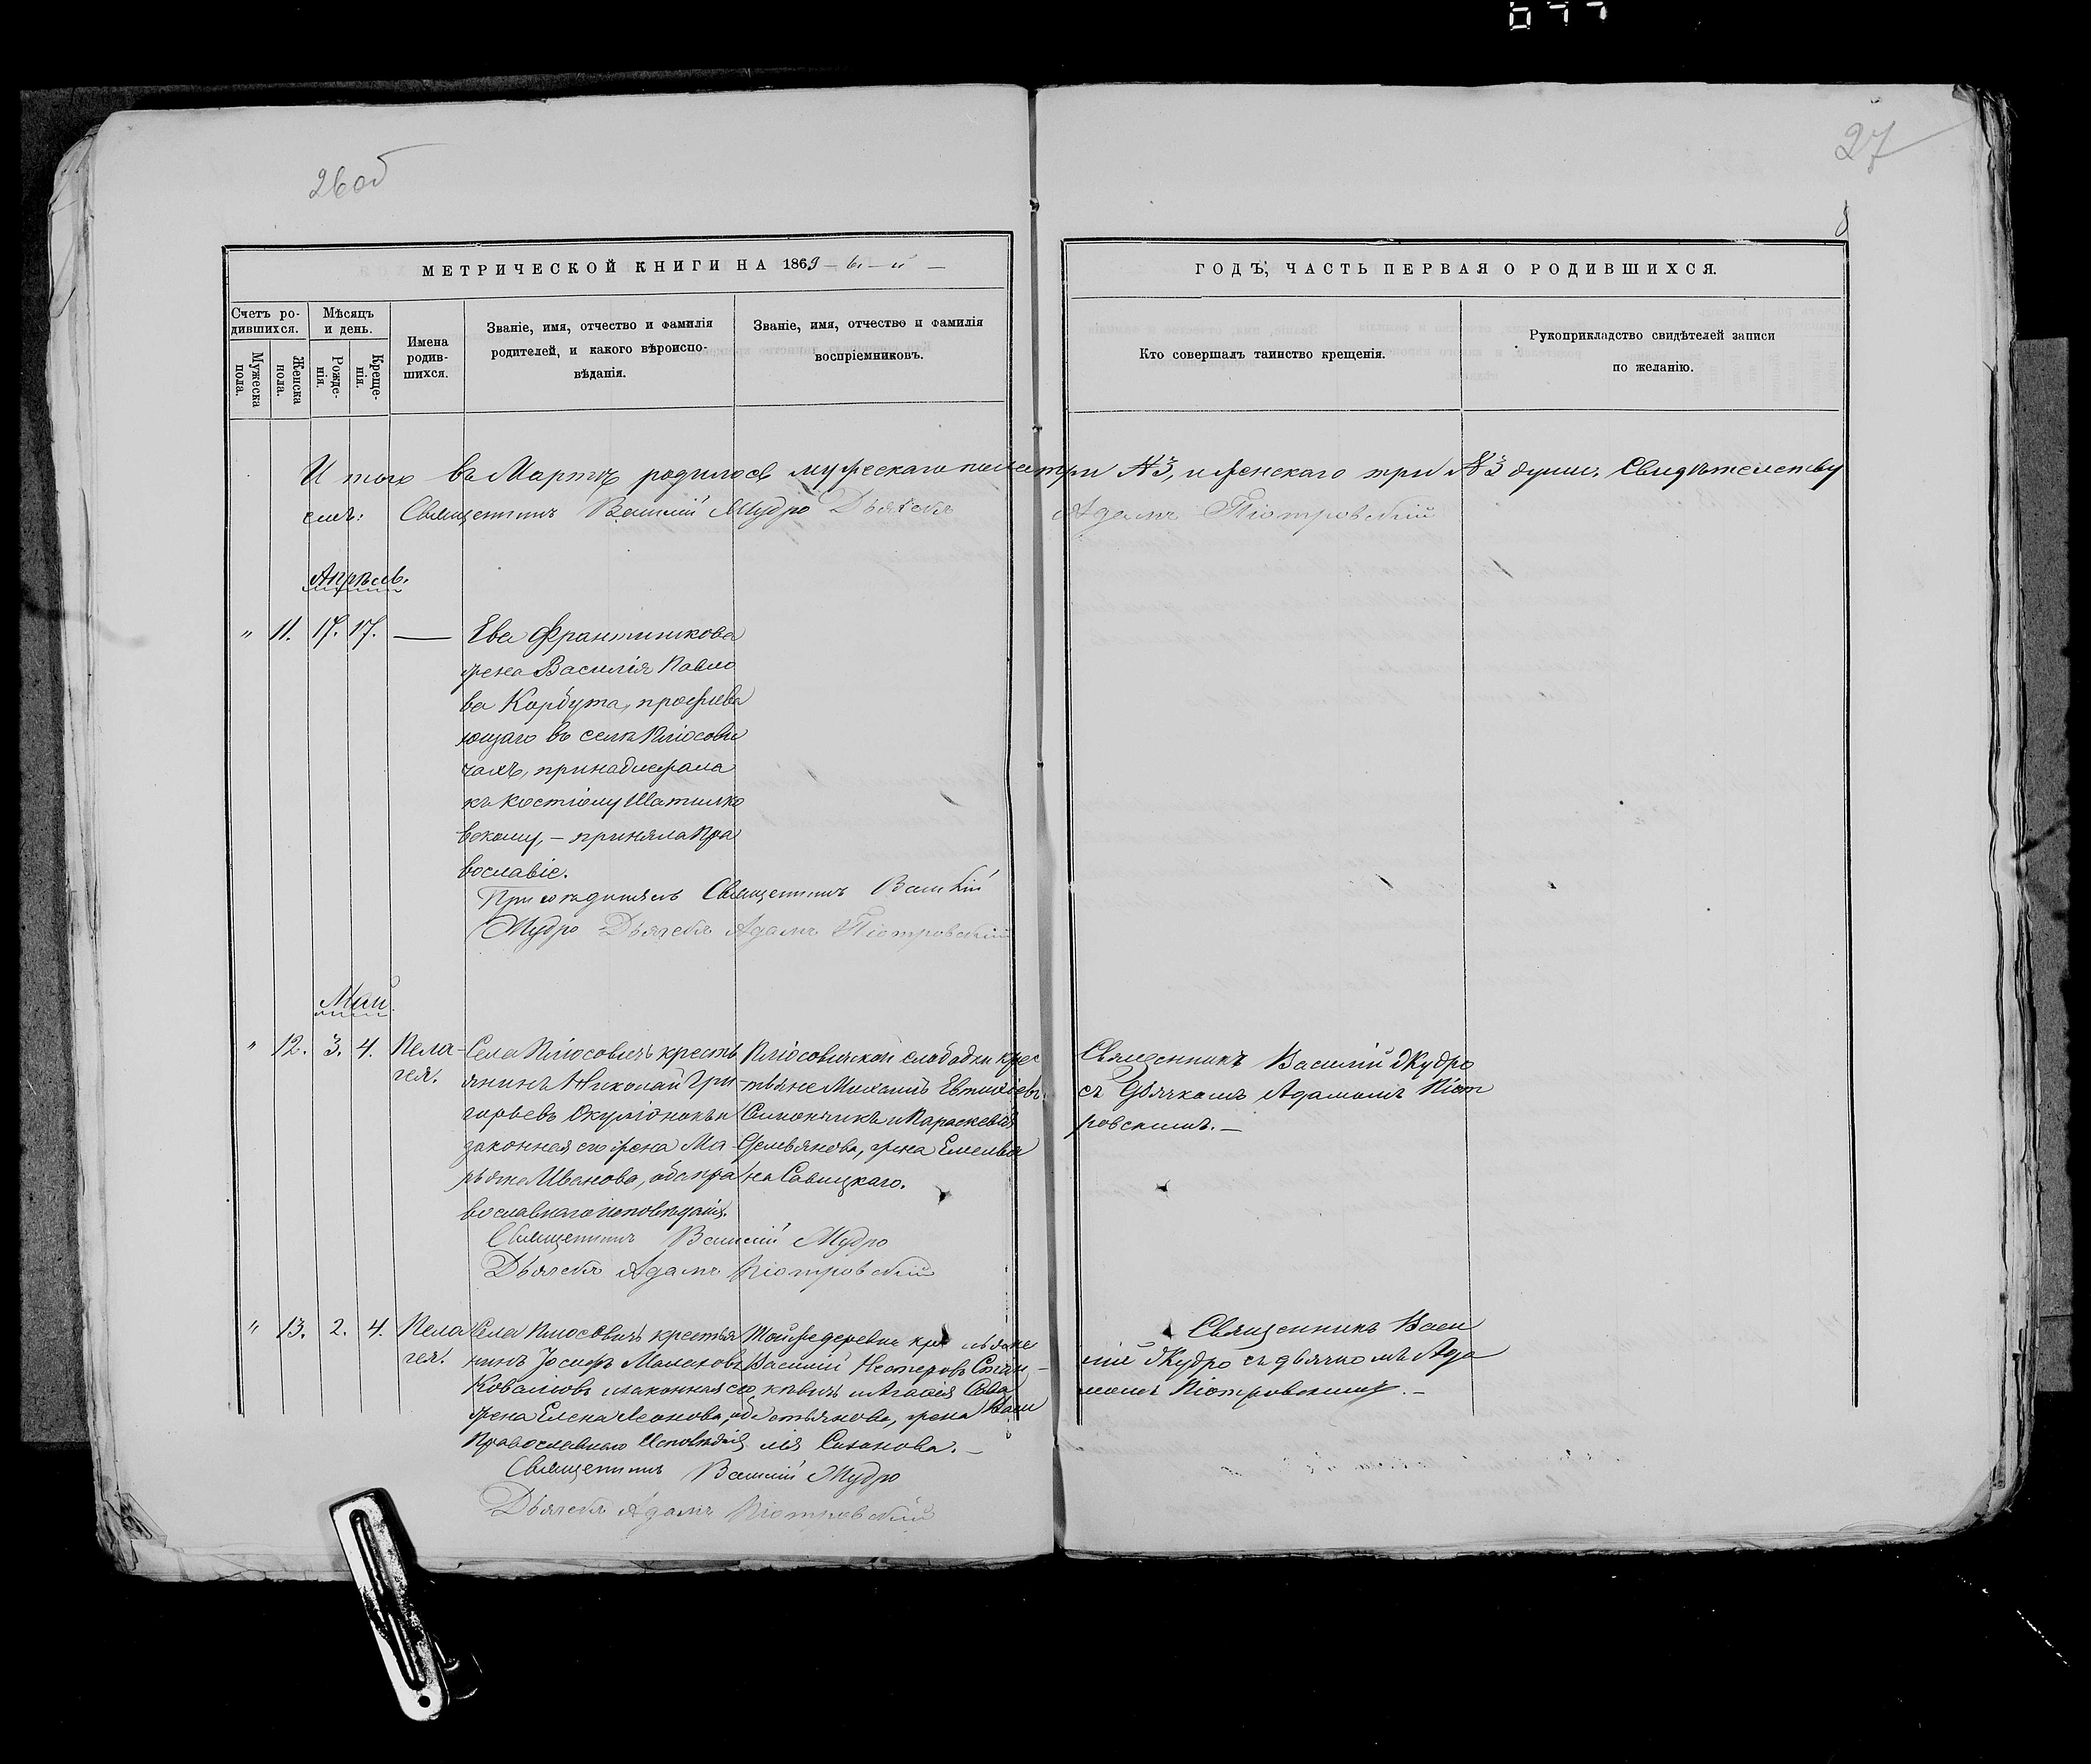 26об
27
8
МЕТРИЧЕСКОЙ КНИГИ НА 1869-ы-й-
ГОДЪ, ЧАСТЬ ПЕРВАЯ О РОДИВШИХСЯ.
Счетъ ро-
дившихся.
Мужеска
пола.
Женска
пола.
Мѣсяцъ
и день.
Рожде-
нія.
Креще-
нія.
Имена
родив-
шихся.
Званіе, имя, отчество и фамилія
родителей, и какого вѣроиспо-
вѣданія.
Званіе, имя, отчество и фамилія
воспріемниковъ.
Кто совершалъ таинство крещенія.
Рукоприкладство свидѣтелей записи
по желанію.
И того въ Мартѣ родилось мужескаго пола три №3, и женскаго три №3 души. Свидѣтельству
емъ: Священникъ Василій Мудро Дьячекъ Адамъ Піотровскій
Апрѣль.
" 11. 17. 17. — Ева Франтишкова
жена Василія Павло
ва Корбута, прожива
ющаго въ селѣ Плюсови
чахъ, принадлежала
къ костіолу Шатилко
вскому, — приняла Пра
вославіе.
Присоединялъ Священникъ Василій
Мудро Дьячекъ Адамъ Піотровскій
Май.
" 12. 3. 4. Пела-
гея.
Села Плюсовичъ кресть
янинъ Николай Гри
горьевъ и
законная его жена Ма-
рьяна Иванова, оба пра
вославнаго исповѣданія.
Священникъ Василій Мудро
Дьячекъ Адамъ Піотровскій
Плюсовичской слободки крес
тьяне Михаилъ Евтихіевъ
Симончикъ и Параскевія
Демьянова, жена Емелья
на Савицкаго.
Священникъ Василій Мудро
съ Дьячкомъ Адамомъ Піот
ровскимъ.—
" 13. 2. 4. Пела
гея.
Села Плюсовичъ крестья
нинъ Іосифъ Малаховъ
и законная его
жена Елена Леонова, об
Православнаго Исповѣданія
Священникъ Василій Мудро
Дьячекъ Адамъ Піотровскій
Той же деревни крестьяне
Василій Нестеровъ
и Агафія Сева
стьянова, жена Васи
лія Сазонова.—
Священникъ Васи
лій Мудро съ дьячкомъ Ада
момъ Піотровскимъ.—